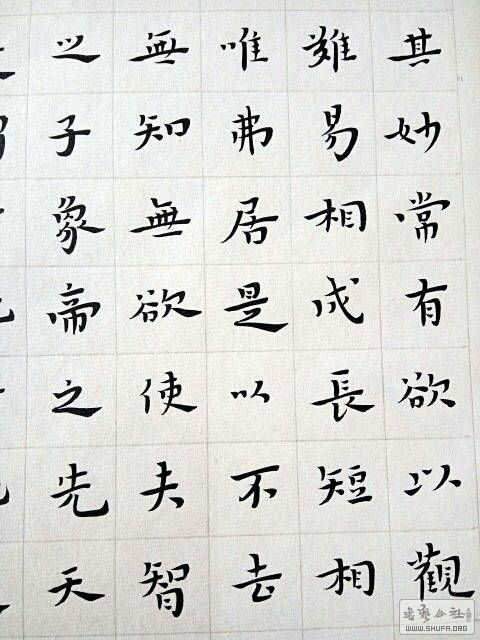 其妙常有欲以觀
難易相成長短相
唯弗居是以不去
無知無欲使夫智
之子象帝之先天
WWW.SHUFA.ORG